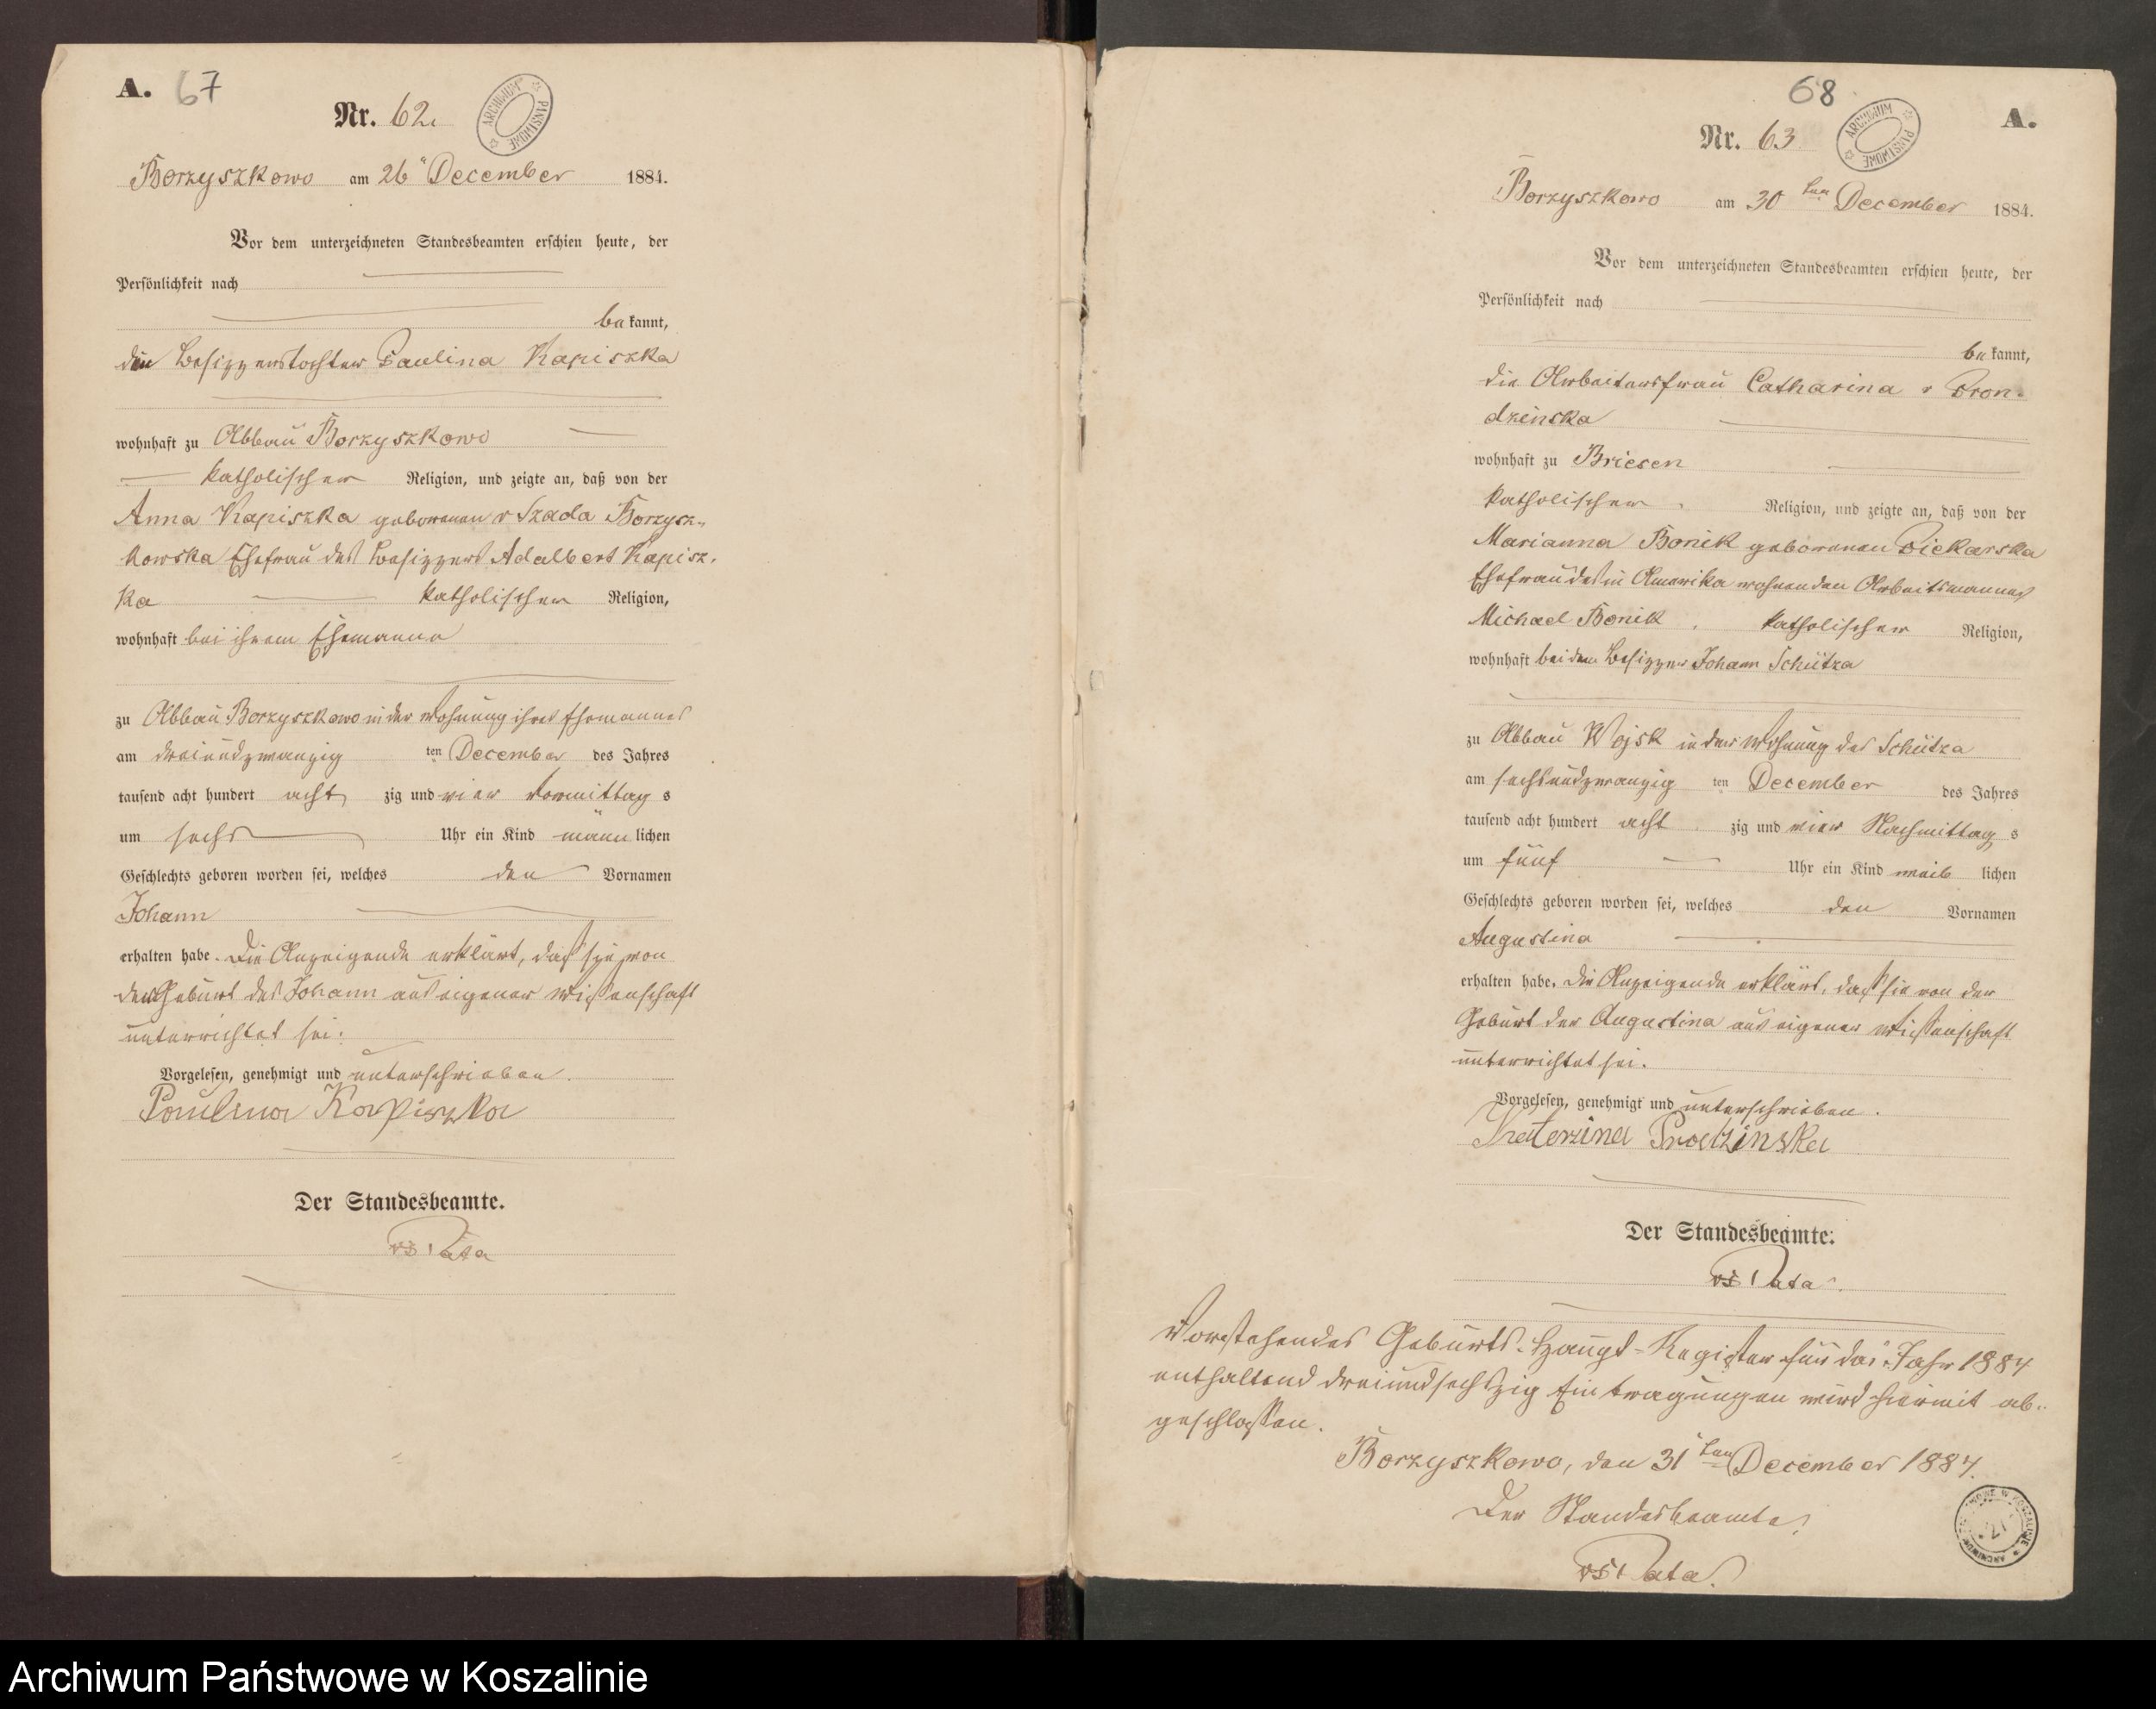 A. 67
Nr. 62.
ARCHIWUM PAŃSTWOWE
Borzyszkowo am 26 December 1884.
Vor dem unterzeichneten Standesbeamten erschien heute, der
Persönlichkeit nach
bekannt,
die Besizzerstochter Paulina Kapiszka
wohnhaft zu Abbau Borzyszkowo
katholischer Religion, und zeigte an, daß von der
Anna Kapiszka geborenen v Szada Borzysz-
kowska Ehefrau des Besizzers Adalbert Kapisz-
ka katholischer Religion,
wohnhaft bei ihrem Ehemanne
zu Abbau Borzyszkowo in der Wohnung ihres Ehemannes
am dreiundzwanzig ten December des Jahres
tausend acht hundert acht zig und vier Vormittag s
um sechs Uhr ein Kind männ lichen
Geschlechts geboren worden sei, welches den Vornamen
Johann
erhalten habe. Die Anzeigende erklärt, daß sie von
der Geburt des Johann aus eigener Wißenschaft
unterrichtet sei.
Vorgelesen, genehmigt und unterschrieben.
Paulina Kapiszka
Der Standesbeamte.
Pata
68
A.
Nr. 63
ARCHIWUM PAŃSTWOWE
Borzyszkowo am 30 ten December 1884.
Vor dem unterzeichneten Standesbeamten erschien heute, der
Persönlichkeit nach
bekannt,
die Arbeitersfrau Catharina v Pron-
dzinska
wohnhaft zu Briesen
katholischer Religion, und zeigte an, daß von der
Marianna Bonik geborenen Piekarska
Ehefrau des in Amerika wohnenden Arbeitsmannes
Michael Bonik katholischer Religion,
wohnhaft bei dem Besizzer Johann Schütza
zu Abbau Wojsk in der Wohnung des Schütza
am sechsundzwanzig ten December des Jahres
tausend acht hundert acht zig und vier Nachmittag s
um fünf Uhr ein Kind weib lichen
Geschlechts geboren worden sei, welches den Vornamen
Augustina
erhalten habe. Die Anzeigende erklärt, daß sie von der
Geburt der Augustina aus eigener Wißenschaft
unterrichtet sei.
Vorgelesen, genehmigt und unterschrieben.
Katerzina Prądzinska
Der Standesbeamte:
Pata.
Vorstehendes Geburts-Haupt-Register für das Jahr 1884
enthaltend dreiundsechszig Eintragungen wird hiermit ab-
geschlossen.
Borzyszkowo, den 31 ten December 1884.
Der Standesbeamte.
Pata.
Archiwum Państwowe w Koszalinie